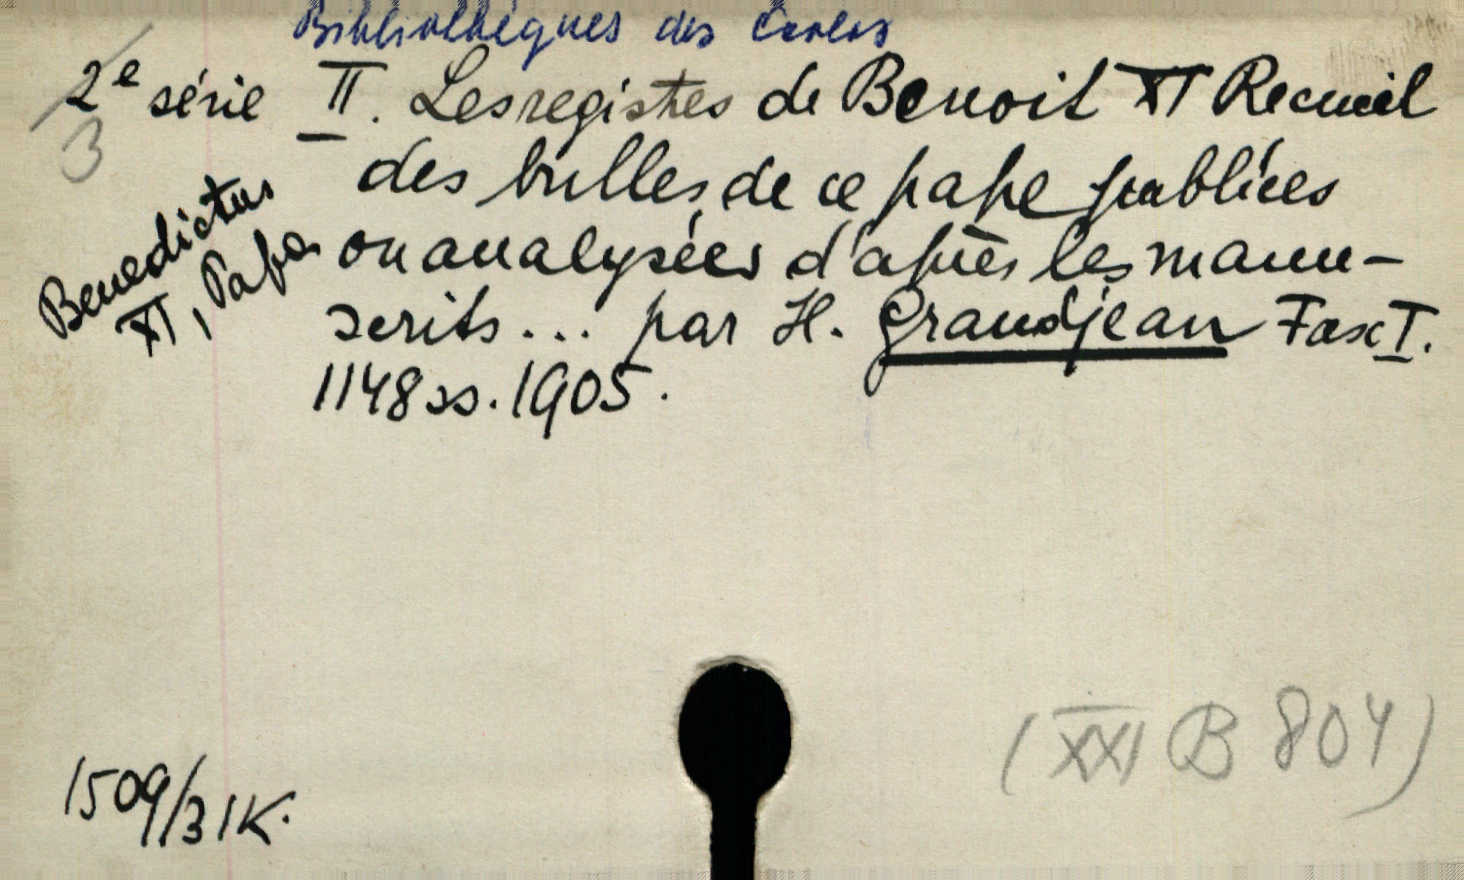 Bibliothèques des Écoles
2e série II. Les registres de Benoit XI Recueil
3
des bulles de ce pape publiées
Benedictus
XI, Papa
ou analysées d'après les manu-
scrits... par H. Grandjean Fasc I.
1148 ss. 1905.
(XXI B 804)
1509/31K.